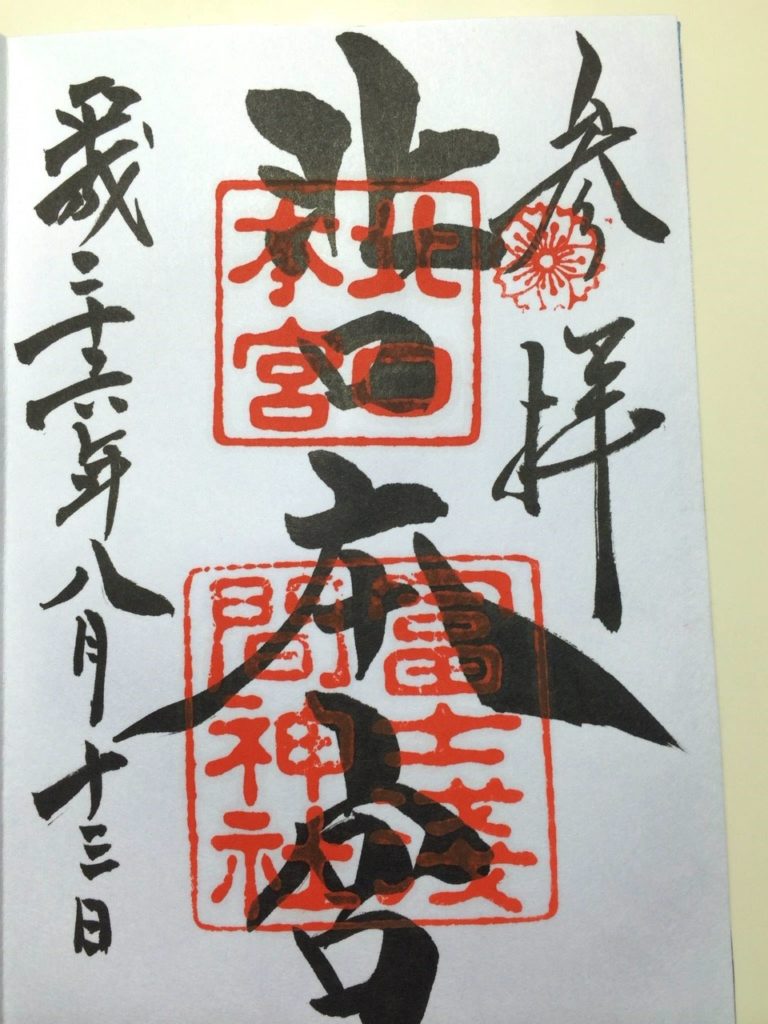 参拝
北口本宮
北口
本宮
富士淺
間神社
平成二十六年八月十三日